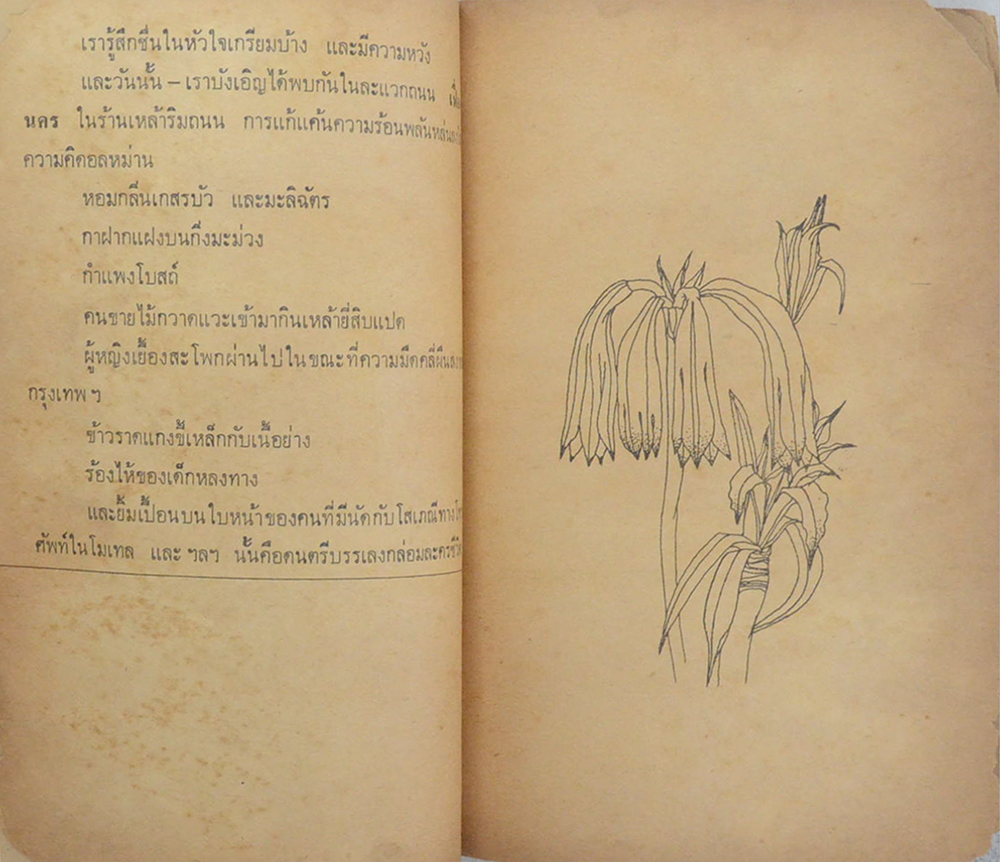 เรารู้สึกชื่นในหัวใจเกรียมบ้าง และมีความหวัง
และวันนั้น – เราบังเอิญได้พบกันในละแวกถนน
นคร ในร้านเหล้าริมถนน การแก้แค้นความร้อนพลัน
ความคิดอลหม่าน
หอมกลิ่นเกสรบัว และมะลิฉัตร
กาฝากแฝงบนกิ่งมะม่วง
กำแพงโบสถ์
คนขายไม้กวาดแวะเข้ามากินเหล้ายี่สิบแปด
ผู้หญิงเยื้องสะโพกผ่านไปในขณะที่ความมืดคลี่ผืน
กรุงเทพฯ
ข้าวราดแกงขี้เหล็กกับเนื้อย่าง
ร้องไห้ของเด็กหลงทาง
และยิ้มเปื้อนบนใบหน้าของคนที่มีนัดกับโสเภณีทาง
ศัพท์ในโมเทล และ ฯลฯ นั้นคือดนตรีบรรเลงกล่อมละคร